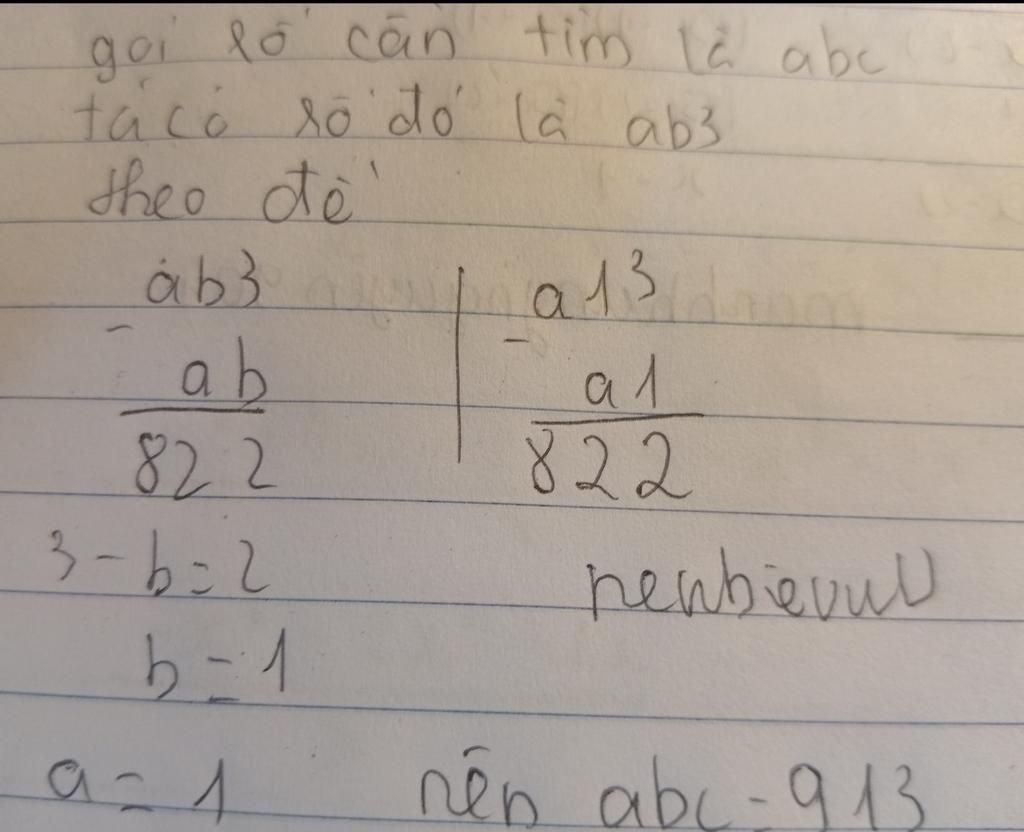 gọi số cần tìm là abc
ta có số đó là ab3
theo đề
ab3 a13
- -
ab a1
822 822
3 - b = 2
b = 1
a = 1 nên abc = 913